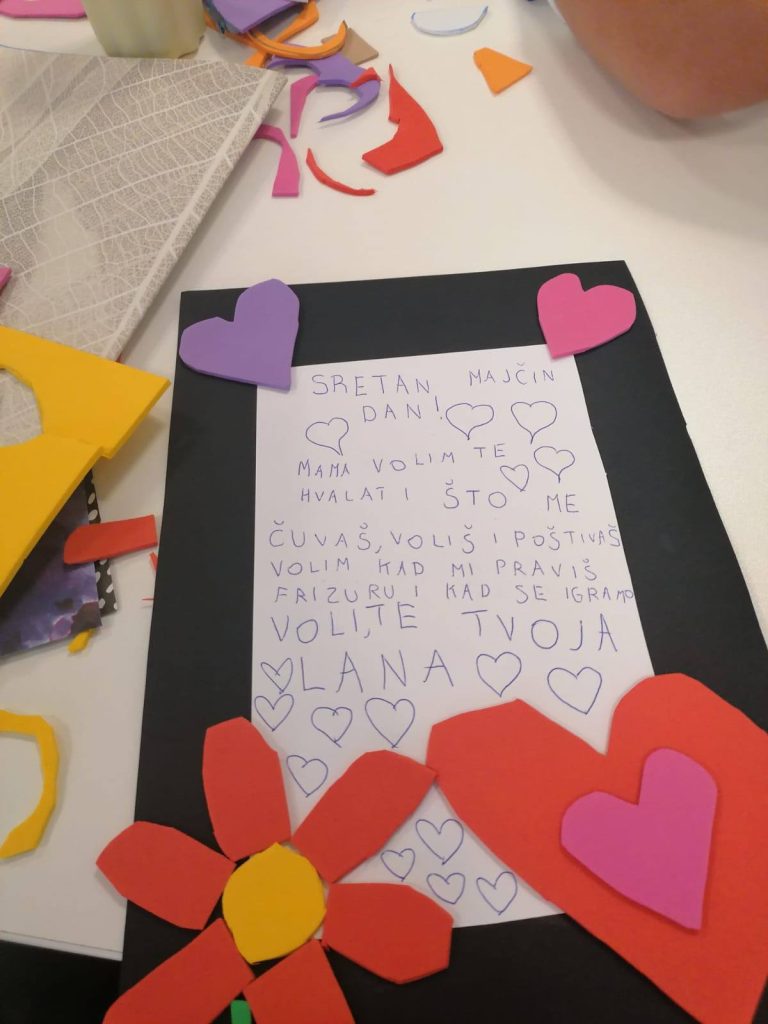 SRETAN MAJČIN
DAN!
MAMA VOLIM TE
HVALATI ŠTO ME
ČUVAŠ, VOLIŠ I POŠTIVAŠ
VOLIM KAD MI PRAVIŠ
FRIZURU I KAD SE IGRAMO
VOLI,TE TVOJA
LANA